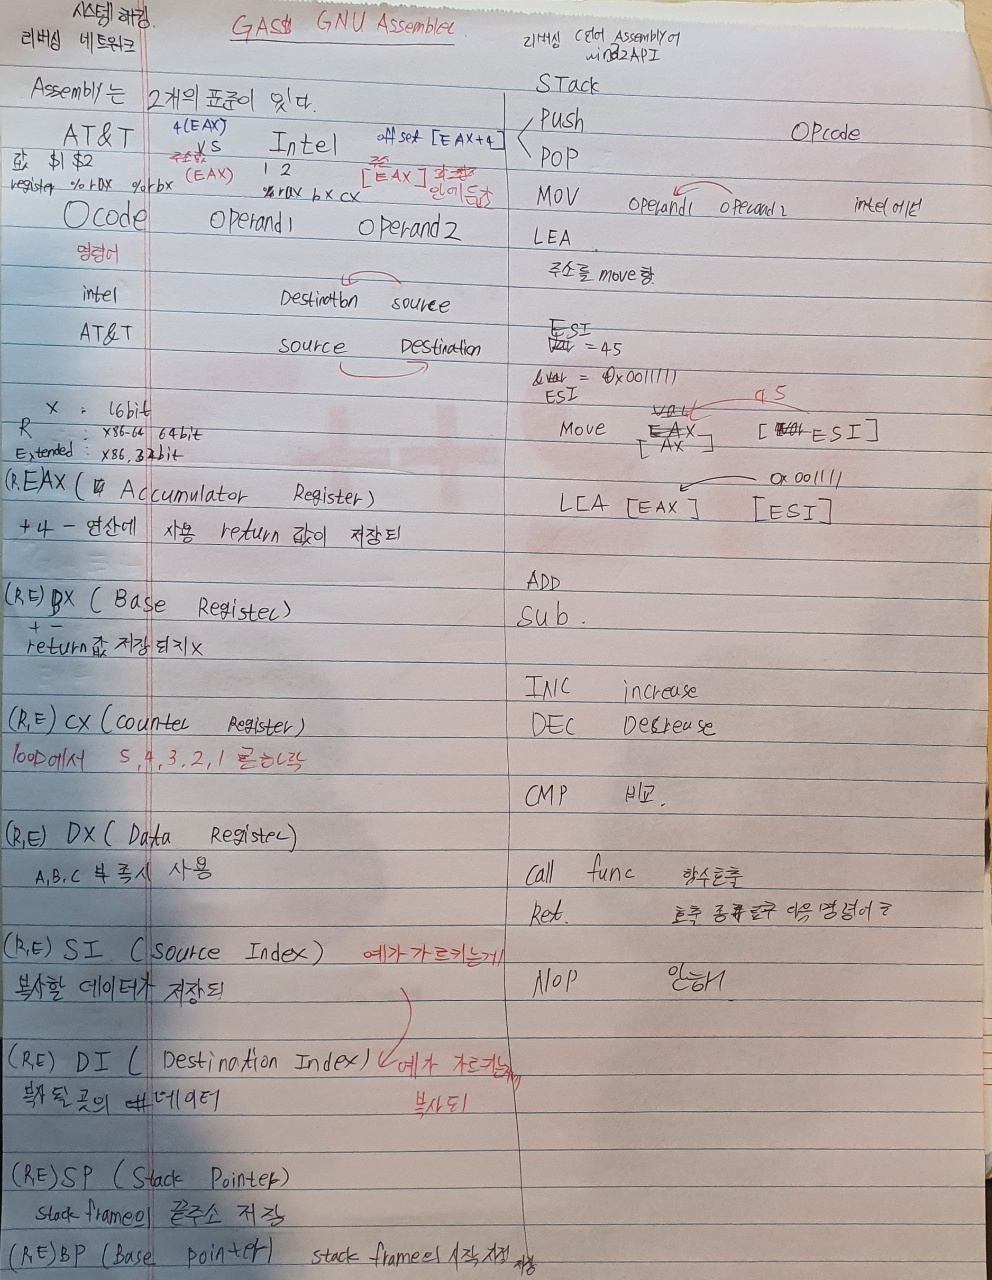 시스템 해킹
리버싱 네트워크
GAS GNU Assembler
Assembly는 2개의 표준이 있다.
AT&T 4(EAX) VS Intel offset [EAX+4]
값 $1 $2 주소값 (EAX) 1 2 주소 [EAX]
register %rax %rbx %rax bx cx
Ocode Operand1 Operand2
명령어
intel Destination source
AT&T source Destination
X : 16bit
R : x86-64 64bit
Extended : x86, 32bit
(R,EAX ( Accumulator Register)
+ 4 - 연산에 사용 return 값이 저장되
(RE) BX ( Base Register)
+ -
return값 저장되지x
(R,E) CX (counter Register)
loop에서 5,4,3,2,1
(R,E) DX ( Data Register)
A,B,C 부족시 사용
(R,E) SI ( Source Index) 얘가 가르키는게
복사할 데이터가 저장되
(R,E) DI ( Destination Index) 얘가 가르키는
복사될 곳의 데이터 복사되
(R,E)SP (Stack Pointer)
stack frame의 끝주소 저장
(R,E)BP (Base pointer) stack frame의 시작지점 저장
리버싱 C언어 Assembly어
win32API
STack
Push
POP
OPcode
MOV operand1 operand2 intel에선
LEA
주소를 move함
ESI
var = 45
&var = 0x001111
ESI
var 45
Move EAX [var ESI]
[AX]
0x001111
LEA [EAX] [ESI]
ADD
Sub.
INC increase
DEC Decrease
CMP 비교.
Call func 함수호출
Ret. 호출 종료 다음 명령어로
NOP 안해